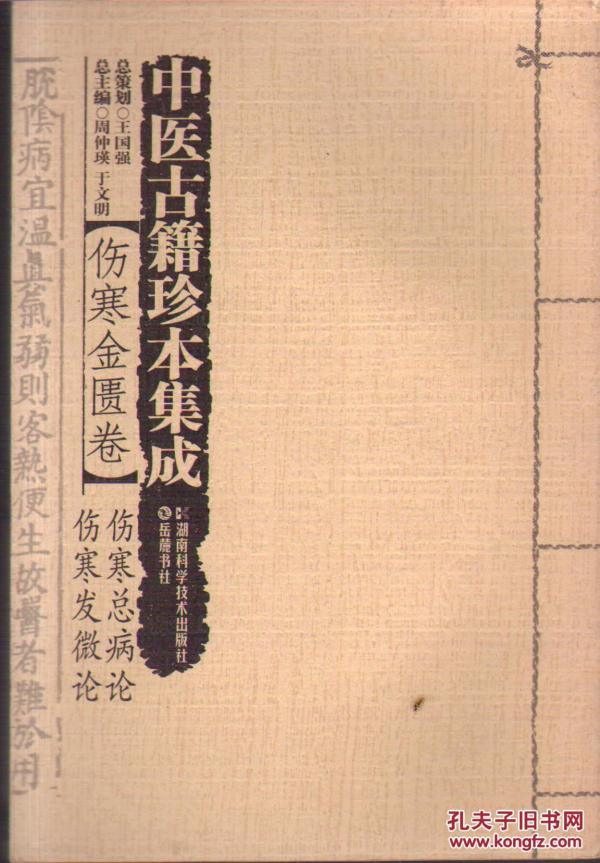 中医古籍珍本集成
总策划○王国强
总主编○周仲瑛 于文明
【伤寒金匮卷】
伤寒总病论
伤寒发微论
湖南科学技术出版社
岳麓书社
脱陰病宜温真氣弱則客熱便生故醫者難於用
孔夫子旧书网
www.kongfz.com